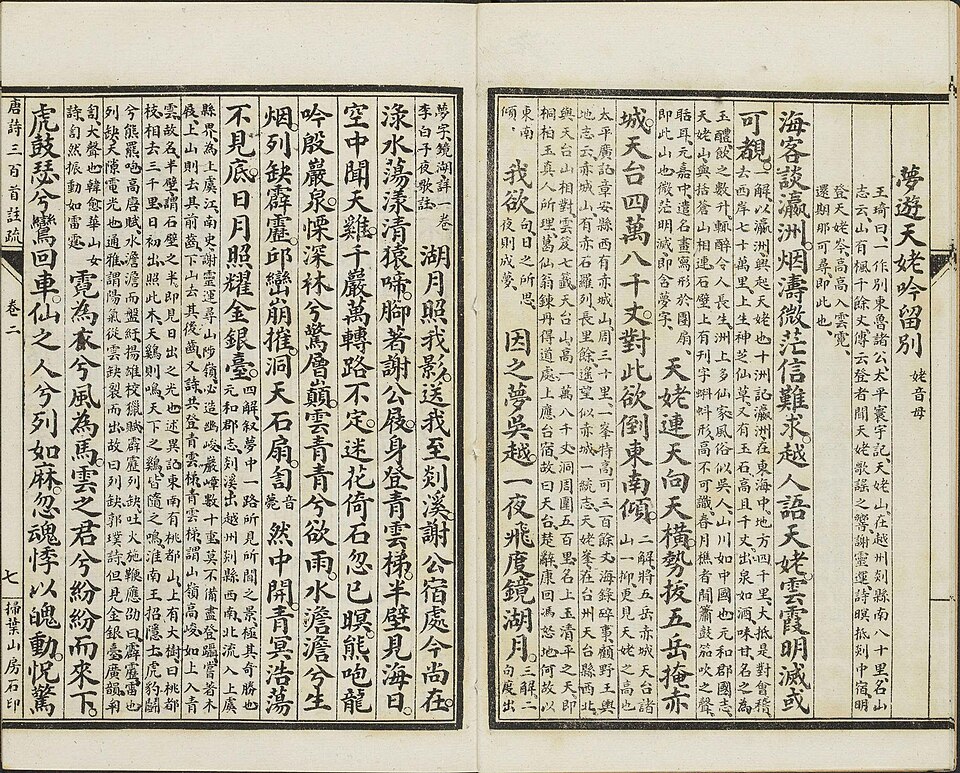 夢遊天姥吟留別 姥音母
王琦曰一作別東魯諸公太平寰宇記天姥山在越州剡縣南八十里名山
志云山有楓千餘丈傳云登者聞天姥歌謠之響謝靈運詩暝抵剡中宿明
登天姥岑高高入雲霓
還期那可尋即此也
海客談瀛洲烟濤微茫信難求越人語天姥雲霞明滅或
可覩
一解以瀛洲興起天姥也十洲記瀛洲在東海中地方四千里大抵是對會稽
去西岸七十萬里上生神芝仙草又有玉石高且千丈出泉如酒味甘名之為
玉醴飲之數升輒醉令人長生洲上多仙家風俗似吳人山川如中國也元和郡國志
天姥山與括蒼山相連石壁上有刊字蝌蚪形高不可識春月樵者聞簫鼓笳吹之聲
聒耳元嘉中遣名畫寫形於團扇
即此山也微茫明滅即含夢字
天姥連天向天橫勢拔五岳掩赤
城天台四萬八千丈對此欲倒東南傾
二解將五岳赤城天台諸
山一抑更見天姥之高也
太平廣記章安縣西有赤城山周三十里一峯特高可三百餘丈海錄碎事顧野王輿
地志云赤城山有赤石羅列長里餘遙望似赤城一統志天姥峯在台州天台縣西北
與天台山相對雲笈七籤天台山高一萬八千丈洞周圍五百里名上玉清平之天即
桐柏玉真人所理葛仙翁鍊丹得道處上應台宿故曰天台楚辭康回馮怒地何故以
東南
傾
我欲
向日之所思
夜則成夢
因之夢吳越一夜飛度鏡湖月
三解二
句度出
夢字鏡湖詳一卷
李白子夜歌註
湖月照我影送我至剡溪謝公宿處今尚在
淥水蕩漾清猿啼腳著謝公屐身登青雲梯半壁見海日
空中聞天雞千巖萬轉路不定迷花倚石忽已暝熊咆龍
吟殷巖泉慄深林兮驚層巔雲青青兮欲雨水澹澹兮生
烟列缺霹靂邱巒崩摧洞天石扇訇音薨然中開青冥浩蕩
不見底日月照耀金銀臺
四解叙夢中一路所見所聞之景極其奇勝也
元和郡志剡溪出越州剡縣西南北流入上虞
縣界為上虞江南史謝靈運尋山陟嶺必造幽峻巖嶂數十重莫不備盡登躡嘗著木
屐上山則去其前齒下山去其後齒又詩共登青雲梯青雲梯謂山嶺高峻如上入青
雲故名半壁謂石壁之半即見日出之光也述異記東南有桃都山上有大樹曰桃都
枝相去三千里日初出照此木天雞則鳴天下之鷄皆隨之鳴淮南王招隱士虎豹鬬
兮熊羆咆高唐賦水澹澹而盤紆揚雄校獵賦霹靂列缺吐火施鞭應劭曰霹靂雷也
列缺天隙電光也通雅謂陽氣從雲缺裂而出故曰列缺郭璞詩但見金銀臺廣韻訇
訇大聲也韓愈華山女
詩訇然振動如雷霆
霓為衣兮風為馬雲之君兮紛紛而來下
虎鼓瑟兮鸞回車仙之人兮列如麻忽魂悸以魄動怳驚
唐詩三百首註疏 卷二 七 掃葉山房石印